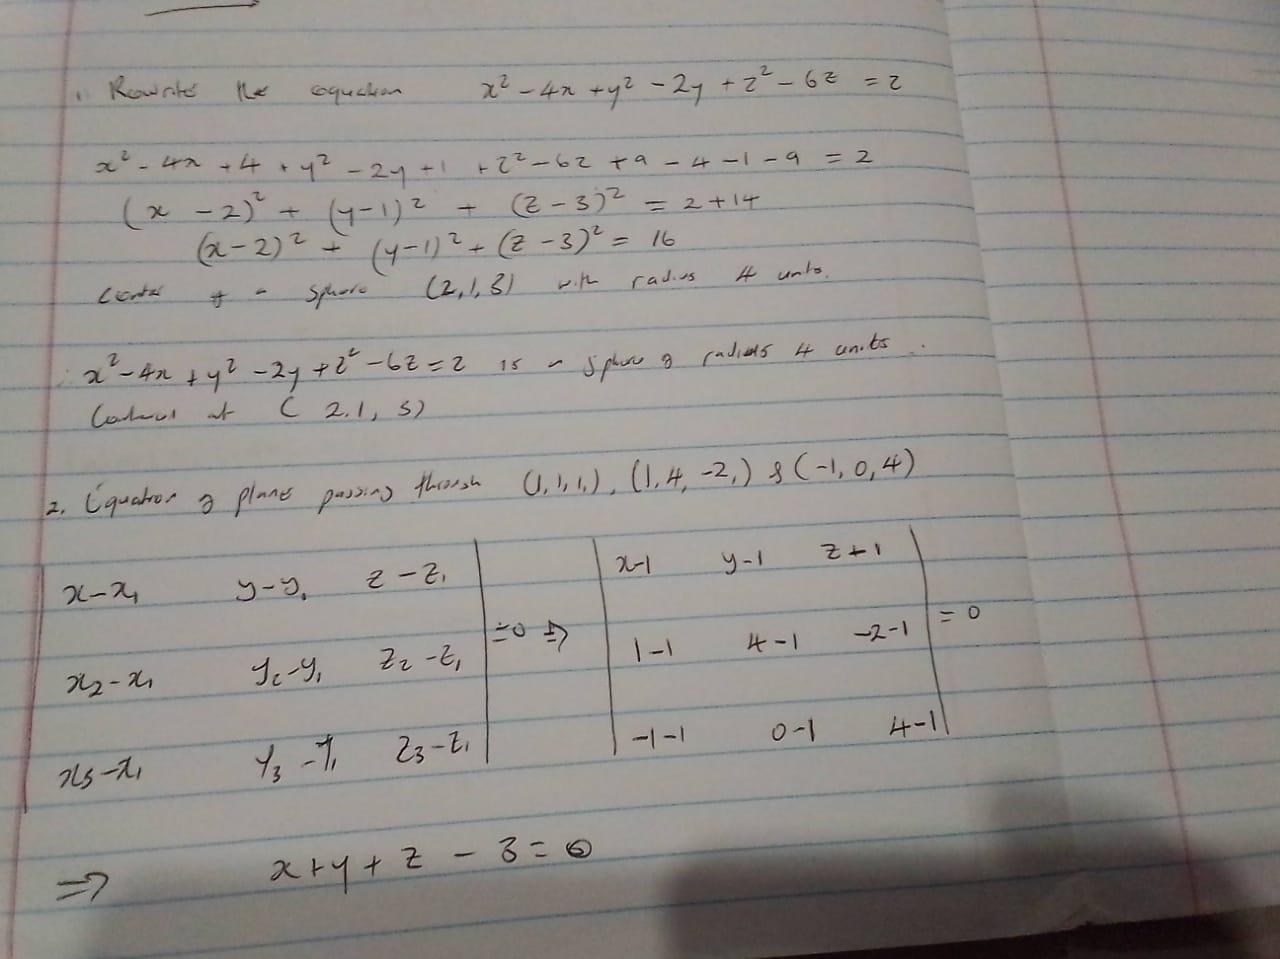 1. Rewrite the equation x² - 4x + y² - 2y + z² - 6z = 2
x² - 4x + 4 + y² - 2y + 1 + z² - 6z + 9 - 4 - 1 - 9 = 2
(x - 2)² + (y-1)² + (z - 3)² = 2 + 14
(x-2)² + (y-1)² + (z - 3)² = 16
Center of a sphere (2,1,3) with radius 4 units.
∴ x² - 4x + y² - 2y + z² - 6z = 2 is a sphere of radius 4 units
Centered at (2.1, 3)
2. Equation of plane passing through (1,1,1,), (1,4,-2,) & (-1,0,4)
| x-x₁ y-y₁ z-z₁ | | x-1 y-1 z+1 |
| x₂-x₁ y₂-y₁ z₂-z₁ | =0 ⇒ | 1-1 4-1 -2-1 | = 0
| x₃-x₁ y₃-y₁ z₃-z₁ | | -1-1 0-1 4-1 |
⇒ x + y + z - 3 = 0